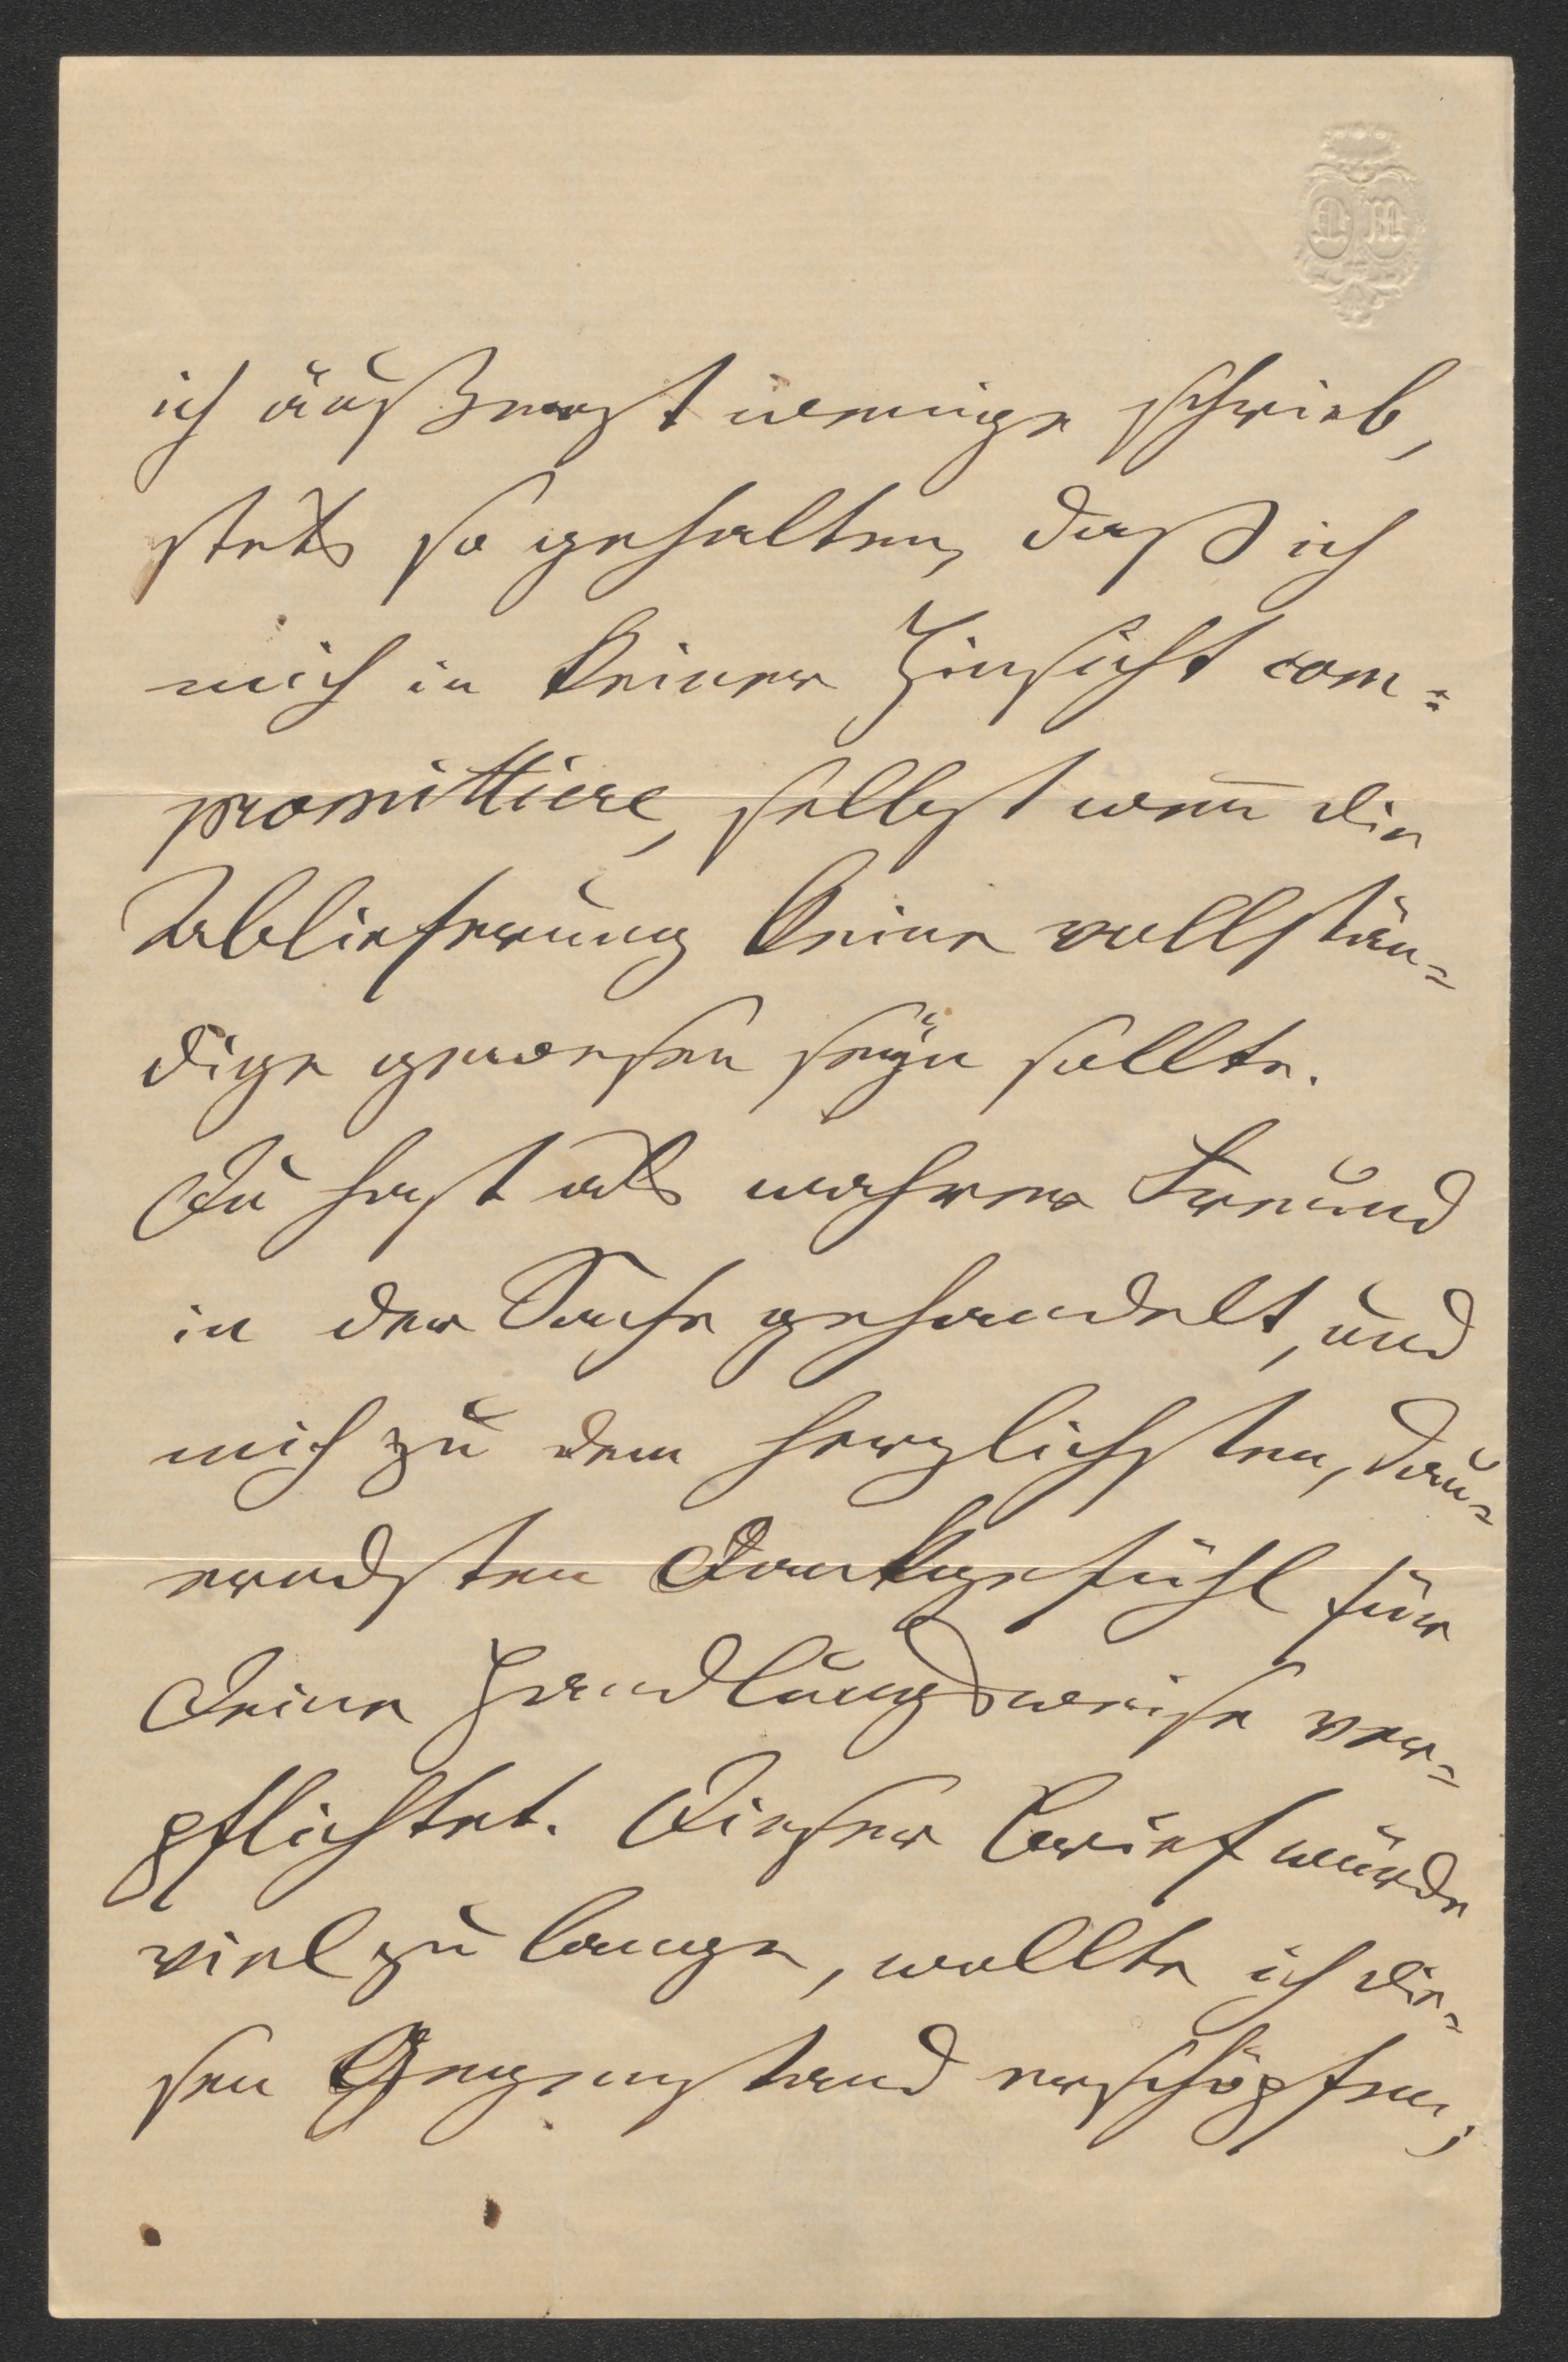 ich äußerst wenige schrieb,
stets so gehalten, daß ich
mich in keiner Hinsicht com=
promittiere, selbst wenn̅ die
Ablieferung keine vollstän=
dige gewesen seÿn sollte.
Du hast als wahrer Freund
in der Sache gehandelt, und
mich zu dem herzlichsten, dau=
erndsten Dankgefühl für
Deine Handlungsweise ver=
pflichtet. Dieser Brief würde
viel zu lange, wollte ich die=
sen Gegenstand erschöpfen;